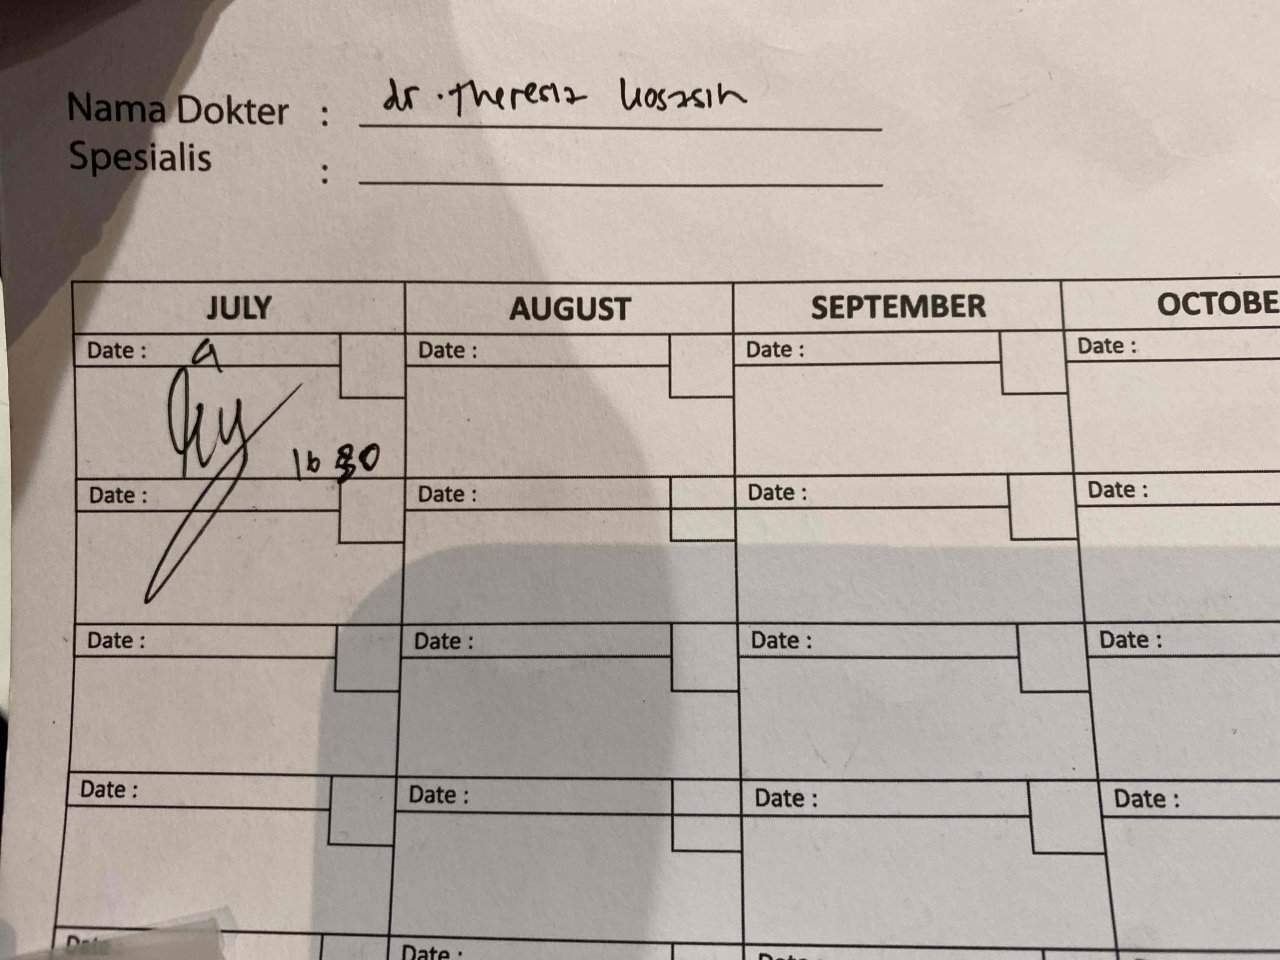 Nama Dokter : dr. Theresia Kosasih
Spesialis :
JULY AUGUST SEPTEMBER OCTOBE
Date : 9 Date : Date : Date :
16 30
Date : Date : Date : Date :
Date : Date : Date : Date :
Date : Date : Date : Date :
Date Date : Date :